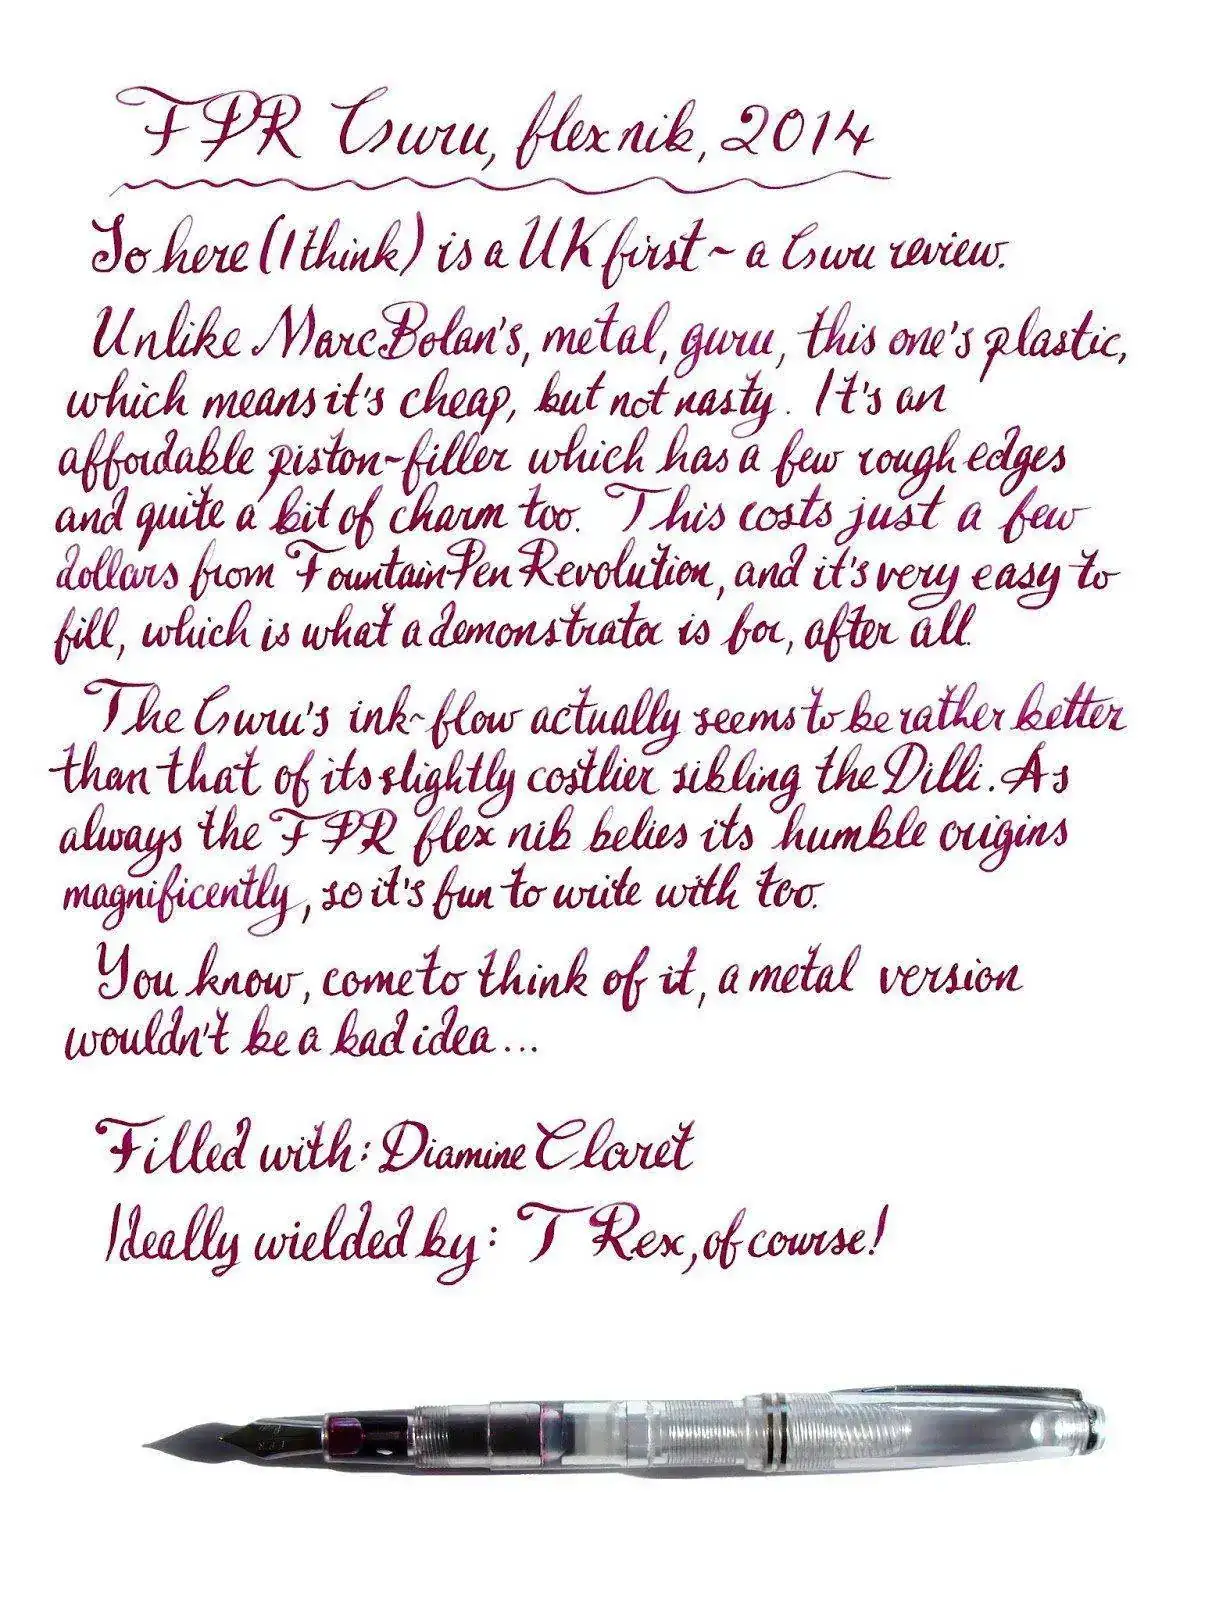 FPR Guru, flex nib, 2014
So here (I think) is a UK first ~ a Guru review.
Unlike Marc Bolan's, metal, guru, this one's plastic,
which means it's cheap, but not nasty. It's an
affordable piston-filler which has a few rough edges
and quite a bit of charm too. This costs just a few
dollars from Fountain Pen Revolution, and it's very easy to
fill, which is what a demonstrator is for, after all.
The Guru's ink-flow actually seems to be rather better
than that of its slightly costlier sibling the Dilli. As
always the FPR flex nib belies its humble origins
magnificently, so it's fun to write with too.
You know, come to think of it, a metal version
wouldn't be a bad idea...
Filled with: Diamine Claret
Ideally wielded by: T Rex, of course!